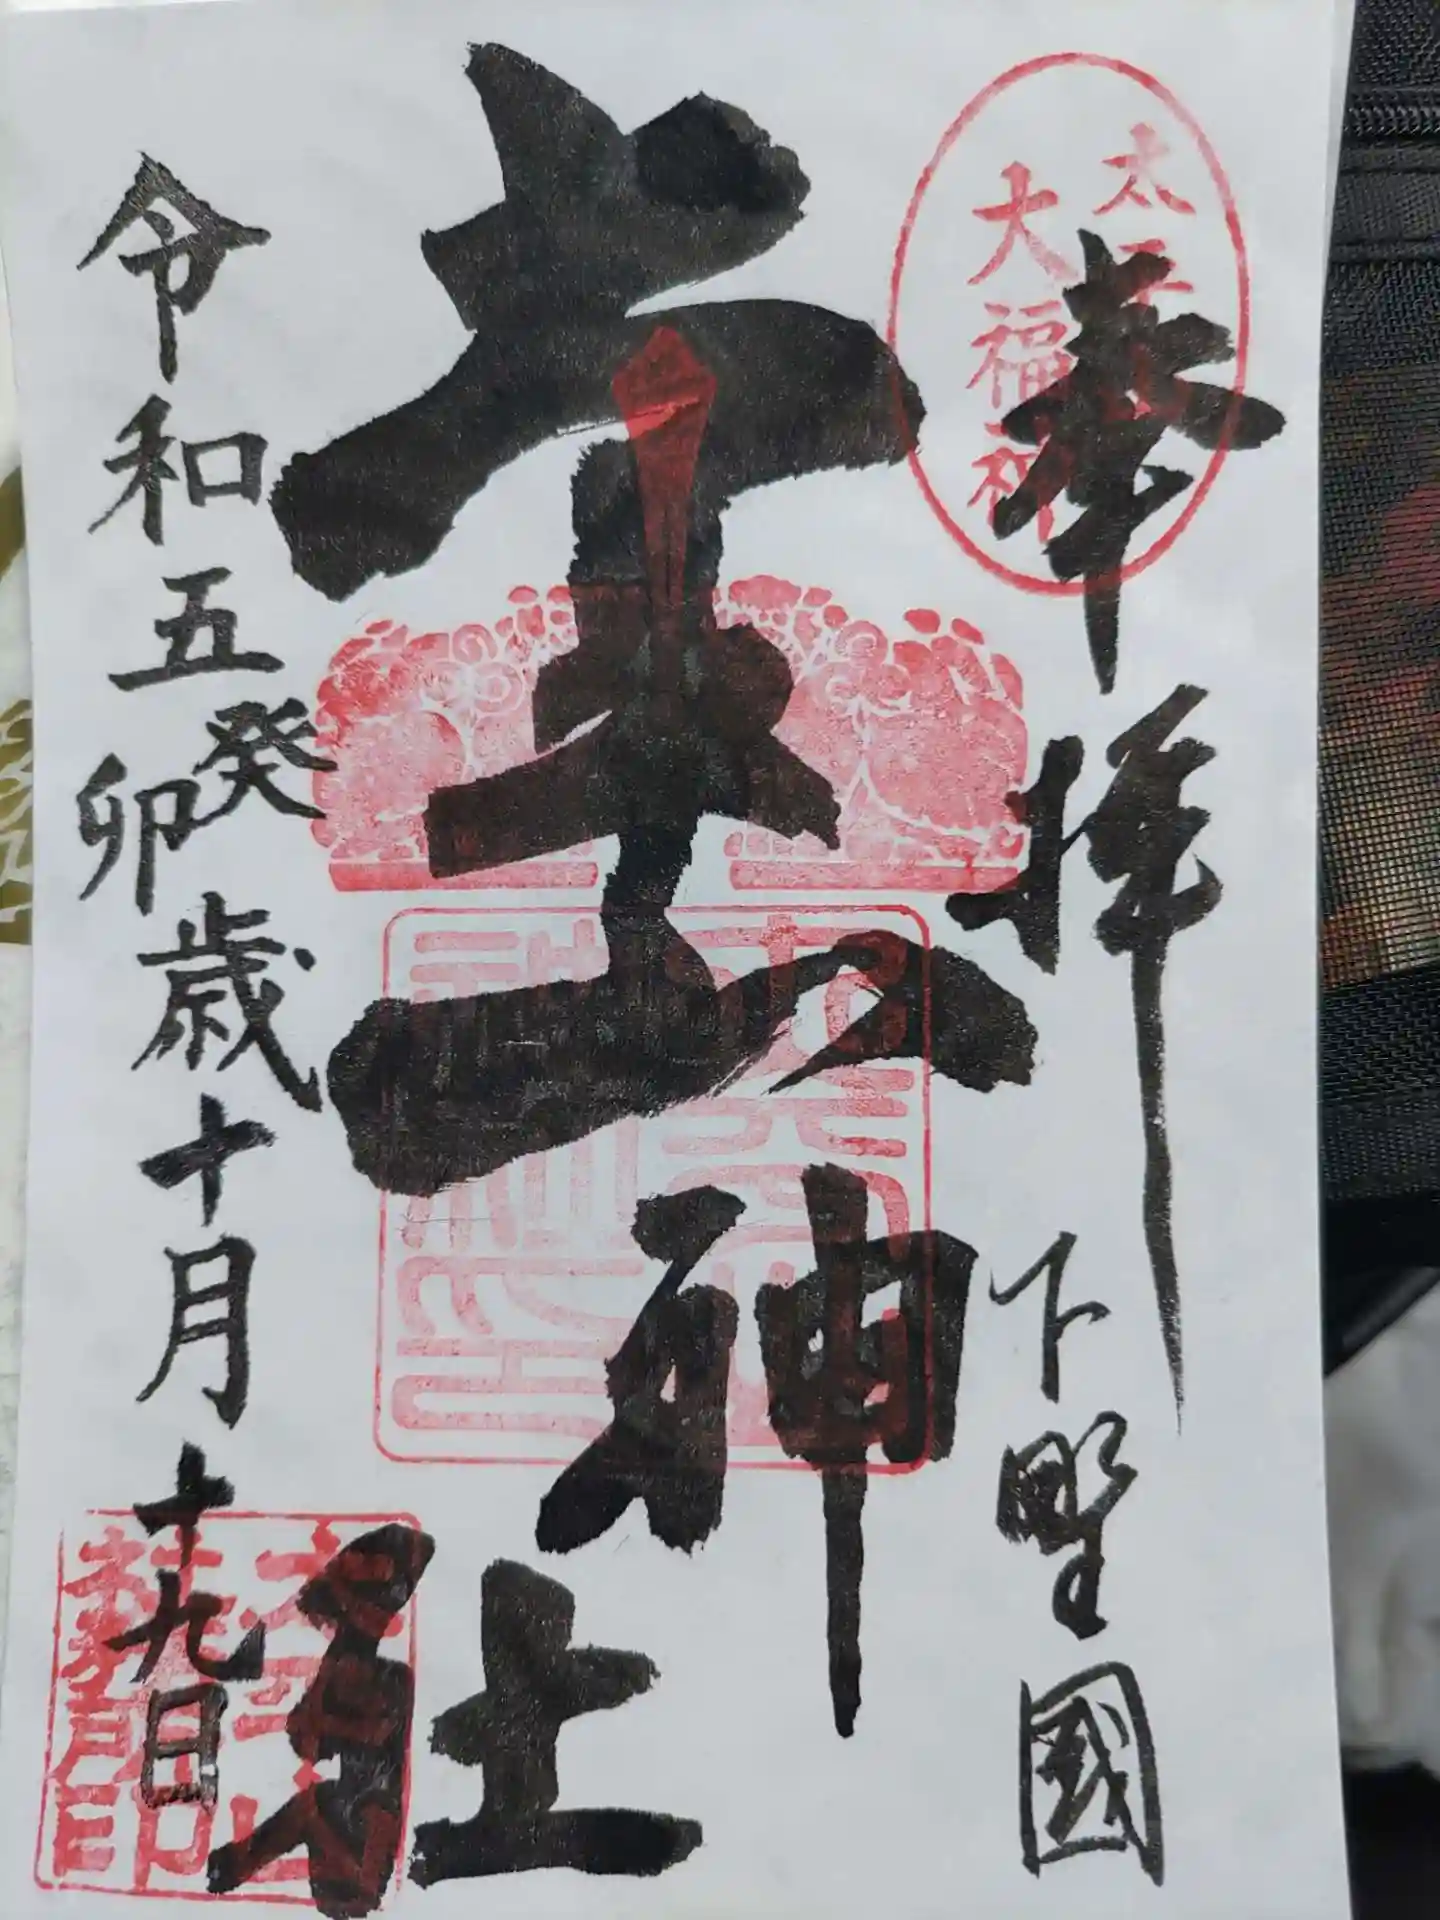 奉拝
下野國
太平山
大福神
太平山神社
令和五癸卯歳十月十九日